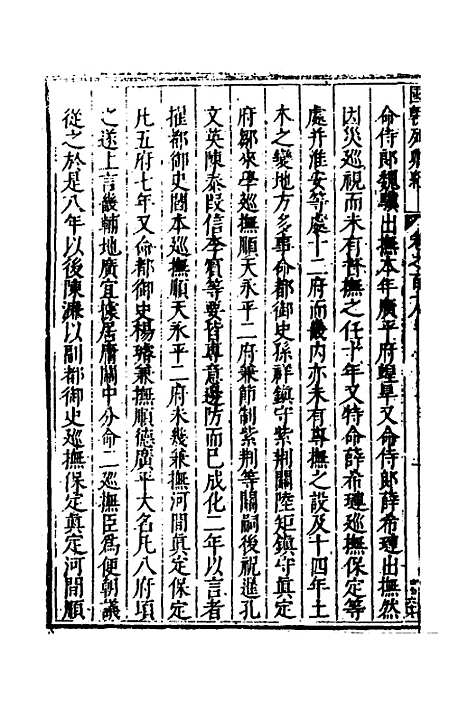 國朝列卿紀 卷之一百十八
命侍郎魏驥出撫本年廣平府蝗旱又命侍郎薛希璉出撫然
因災巡視而未有督撫之任十年又特命薛希璉巡撫保定等
處并淮安等處十二府而畿內亦未有專撫之設及十四年土
木之變地方多事命都御史孫祥鎮守紫荆關陸矩鎮守真定
府鄒來學巡撫順天永平二府兼節制紫荆等關嗣後祝暹孔
文英陳泰段信李賓等要皆專意邊防而已成化二年以言者
擢都御史閻本巡撫順天永平二府未幾兼撫河間眞定保定
凡五府七年又命都御史楊璿兼撫順德廣平大名凡八府項
之遂上言畿輔地廣宜據居庸關中分命二巡撫臣爲便朝議
從之於是八年以後陳濂以副都御史巡撫保定眞定河間順